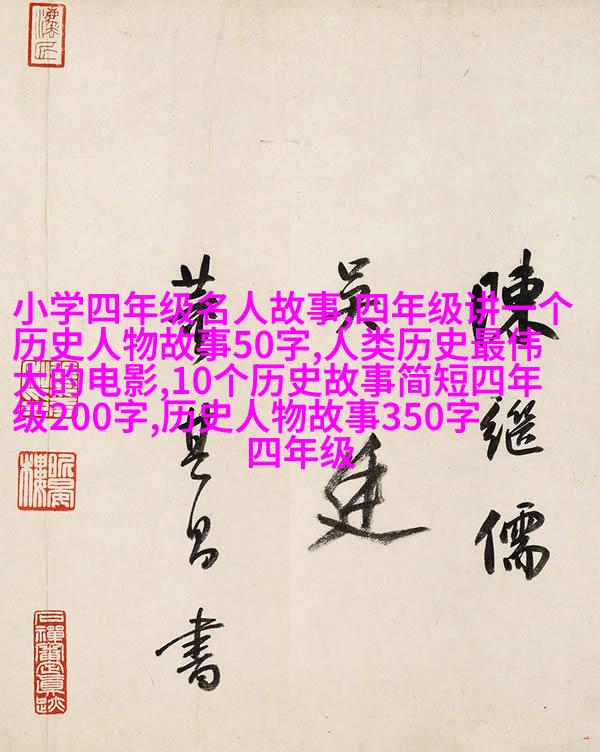 小学四年级名人故事,四年级讲一个
历史人物故事50字,人类历史最伟
大的电影,10个历史故事简短四年
级200字,历史人物故事350字
四年级
陳繼儒
吴廷
董其昌書